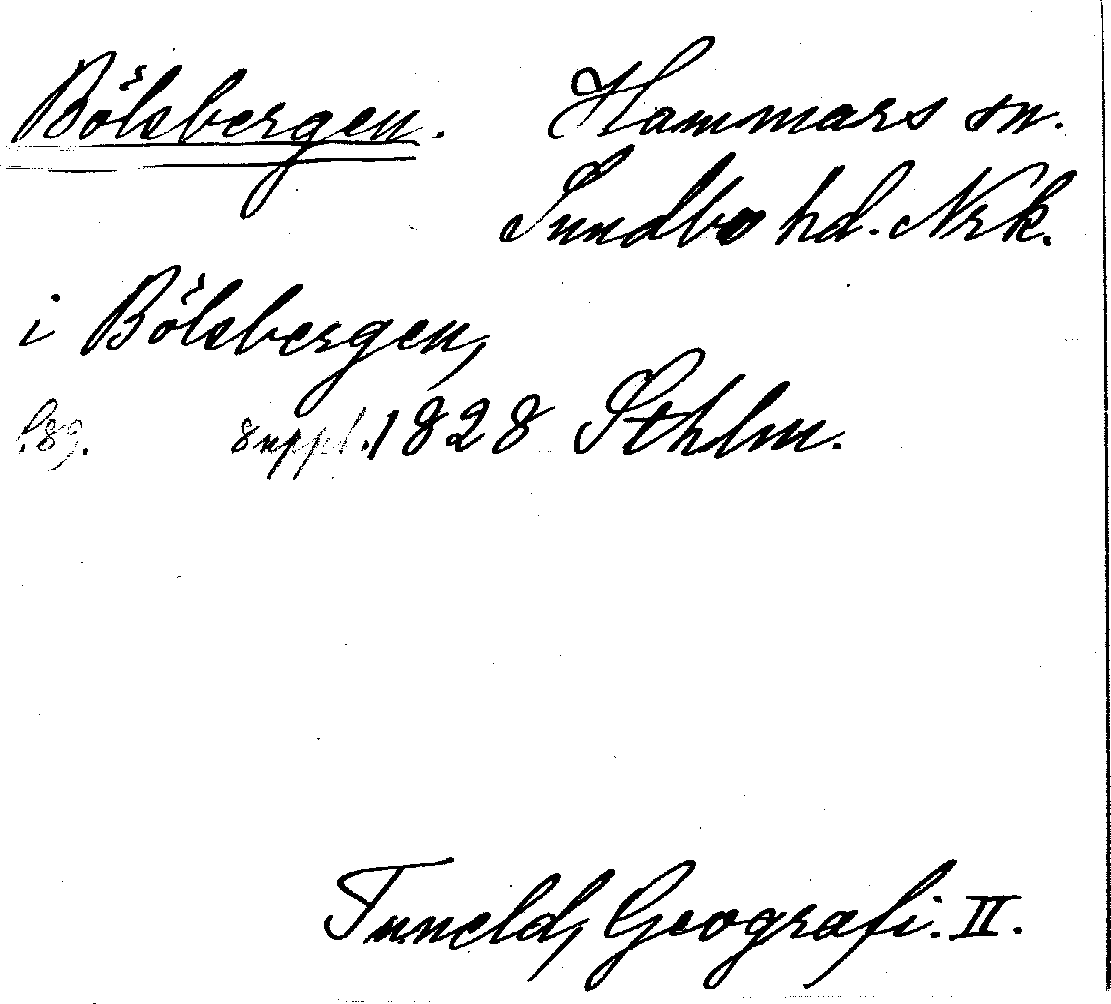 Bölsbergen. Hammars sn.
Sundbo hd. Nrk.
i Bölsbergen,
s. 89. suppl. 1828 Sthlm.
Tuneld, Geografi. II.